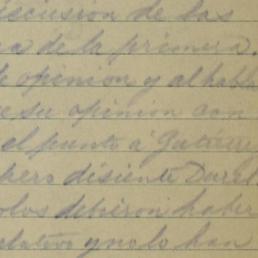 discusion de las
a de la primera.
opinion y al habla
e su opinion con
el punto á Gutierre
pero disiente Durel
olos debieron haber
elativo y no lo han